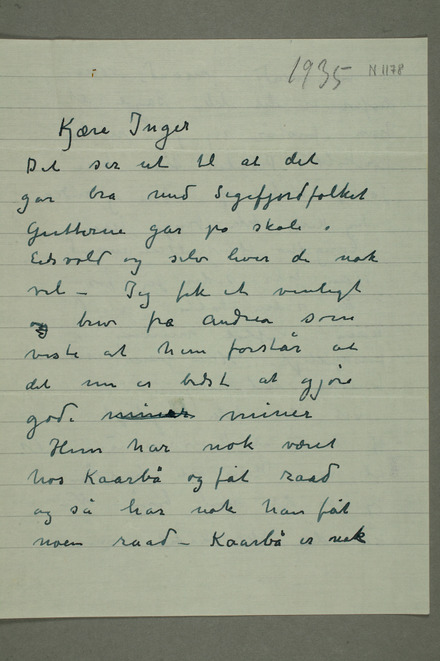 1935 N 1178
Kjære Inger
Det ser ut til at det
gar bra med Sigefjordfolket
Gutterne gar på skole i
Eidsvold og selv lever de nok
vel – Jeg fik et venligt
brev fra Andrea som
viste at hun forstår at
det nu er bedst at gjøre
gode miner miner
Hun har nok været
hos Kaarbø og fåt raad
og så har nok han fåt
noen raad – Kaarbø er nok